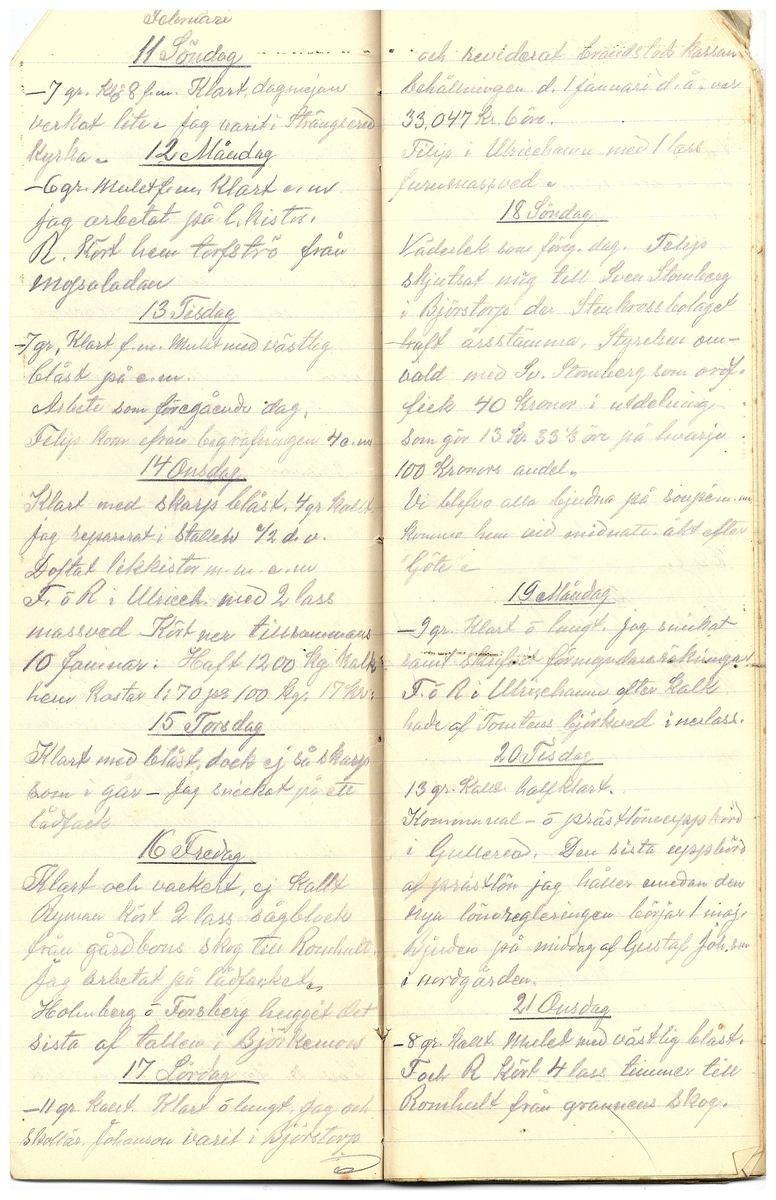 Februari
11 Söndag
-7 gr. Kl. 8 f.m. Klart, dagmejan
verkat lite - jag varit i Strängsered
Kyrka - 12 Måndag
-6 gr. Mulet f.m. Klart e.m.
jag arbetat på l.kistor.
R. Kört hem torfströ från
mossaladan
13 Tisdag
-7 gr, Klart f.m. Mulet med västlig
blåst på e.m.
Arbete som föregående dag.
Felip kom från begrafningen 4 e.m
14 Onsdag
Klart med skarp blåst. 4 gr. kallt.
jag reparerat i stallen 1/2 d. o.
Doftat likkistor m.m. e.m
F. o R i Ulriceh. med 2 lass
massved Kört ner tillsammans
10 famnar: Haft 1200 Kg. Kalk
hem Kostar 1,70 pr 100 Kg. 17 kr:
15 Torsdag
Klart med blåst, dock ej så skarp
som i går - Jag snickat på ett
lådfack
16 Fredag
Klart och vackert, ej kallt
Ryman Kört 2 lass sågblock
från gårdbons skog till Romhult.
Jag arbetat på lådfacket.
Holmberg o Forsberg hugget det
sista af tallen i Björkemoss
17 Lördag
-11 gr. Kallt. Klart o lungt. Jag och
Johanson varit i Björstorp
och reviderat brandstods kassan
behållningen d. 1 januari d. å. var
33,047 Kr. 6 öre.
Felip i Ulricehamn med 1 lass
furumassved.
18 Söndag
Väderlek som föreg. dag. Felip
skjutsat mig till Sven Stomberg
i Björstorp der Stenkrossbolaget
haft årsstämma. Styrelsen om-
vald med Sv. Stomberg som ordf.
fick 40 Kronor i utdelning
som gör 13 Kr 33 1/3 öre på hvarje
100 Kronors andel.
Vi blefvo alla bjudna på soupé m.m
kommo hem vid midnatt. åkt efter
Göte
19 Måndag
-9 gr. Klart o lungt. jag snickat
samt skrifvit förmyndareräkningar
F. o R i Ulricehamn efter Kalk
hade af Tomtens björkved i nerlass.
20 Tisdag
13 gr. Kallt halfklart.
Kommunal- o prästlöneuppbörd
i Gullered. Den sista uppbörd
af prästlön jag håller emedan den
nya löneregleringen börjar 1 maj.
Bjuden på middag af Gustaf Joh.son
i nordgården.
21 Onsdag
-8 gr. kallt Mulet med västlig blåst.
F och R Kört 4 lass timmer till
Romhult från grannens skog.